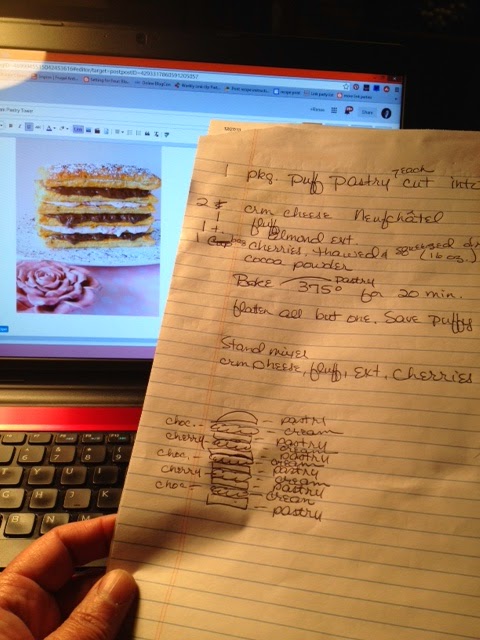 1 pkg. puff pastry 7 each cut into
2 crm cheese Neufchâtel
1 fluff
1 t almond ext.
1 bag cherries, thawed & squeezed dr
(16 oz.)
cocoa powder
Bake pastry
375° for 20 min.
flaten all but one. Save puffy
Stand mixer
crm cheese, fluff, ext, cherries
choc. - pastry
- cream
cherry - pastry
- cream
choc. - pastry
- cream
cherry - pastry
- cream
choc - pastry
- cream
- pastry